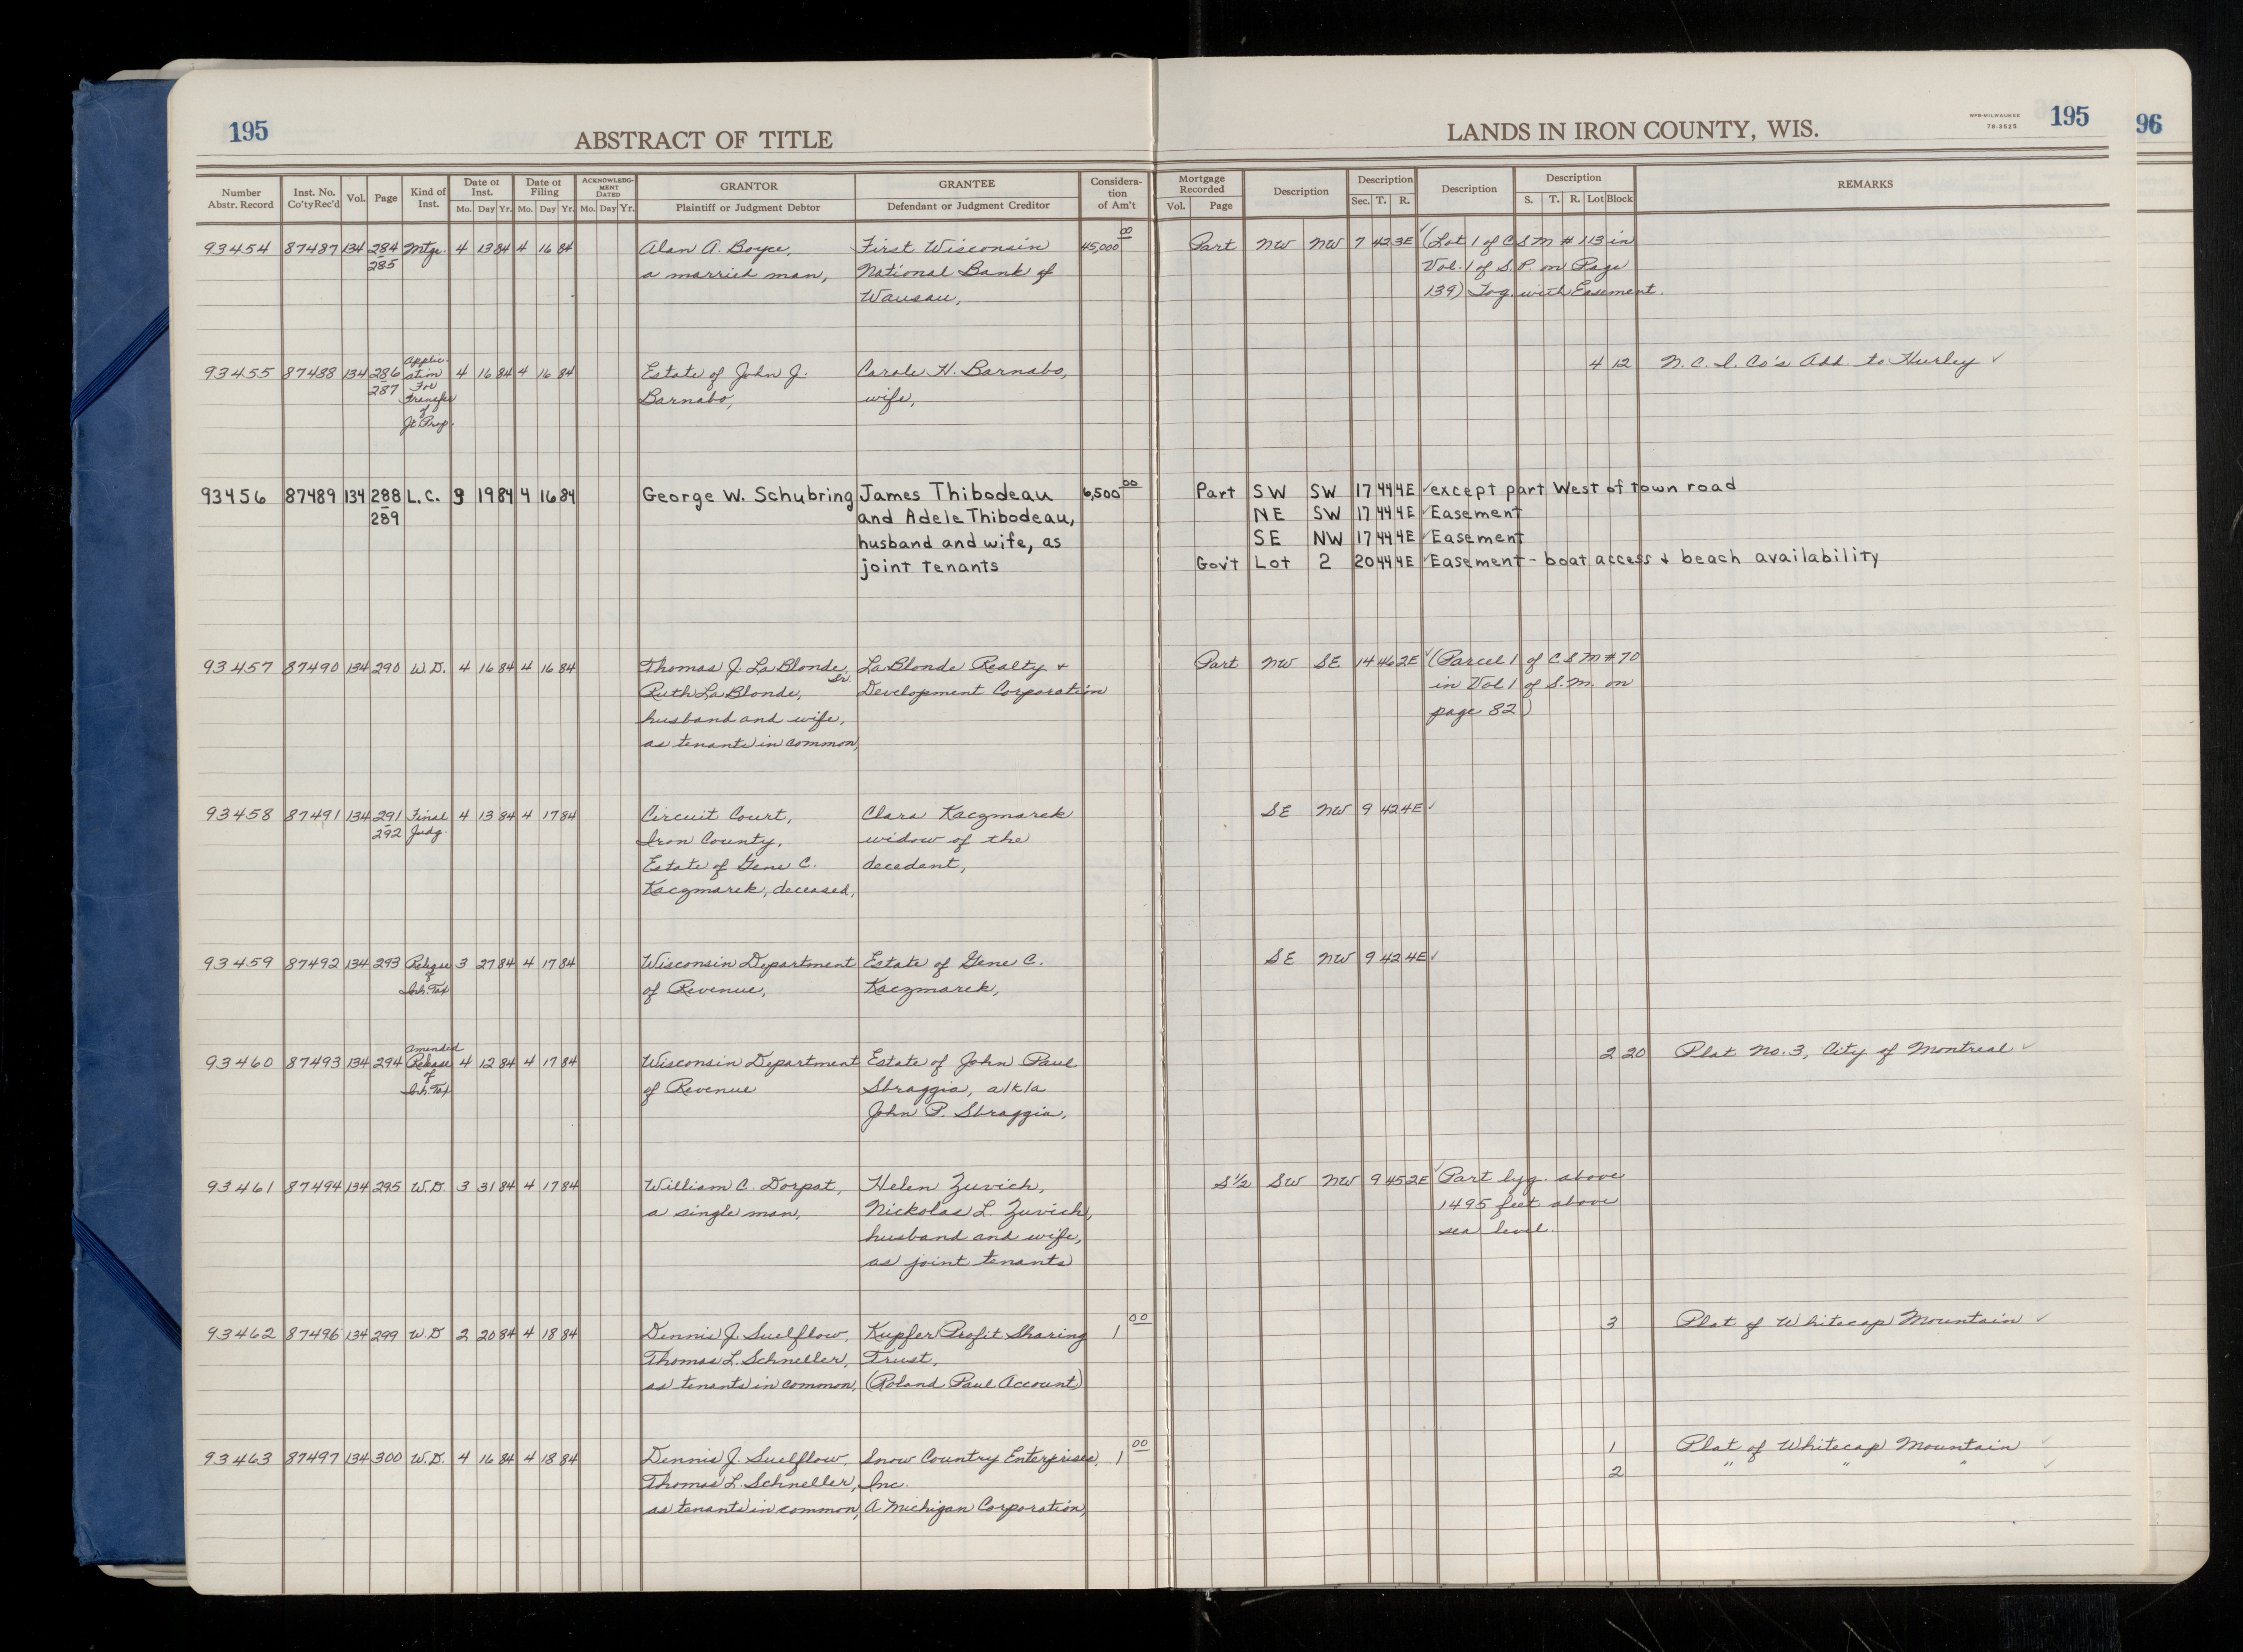 195
ABSTRACT OF TITLE
LANDS IN IRON COUNTY, WIS.
WPR-MILWAUKEE
78-3525
195
96
Number Abstr. Record
Inst. No. Co'ty Rec'd
Vol.
Page
Kind of Inst.
Date of Inst.
Mo. Day Yr.
Date of Filing
Mo. Day Yr.
ACKNOWLEDGMENT DATED
Mo. Day Yr.
GRANTOR
Plaintiff or Judgment Debtor
GRANTEE
Defendant or Judgment Creditor
Consideration of Am't
Mortgage Recorded
Vol. Page
Description
Description
Sec. T. R.
Description
Description
S. T. R. Lot Block
REMARKS
93454 87487 134 284 Mtge. 4 13 84 4 16 84 Alan A. Boyce, First Wisconsin 45,000 00 Part NW NW 7 42 3E ✓ (Lot 1 of C S M # 113 in
285 a married man, National Bank of Vol. 1 of S. P. on Page
Wausau, 139) Tog. with Easement.
Applic-
93455 87488 134 286 ation 4 16 84 4 16 84 Estate of John J. Carole H. Barnabo, 4 12 N. C. I. Co's Add. to Hurley ✓
287 For Barnabo, wife,
Transfer
of
Jt. Prop.
93456 87489 134 288 L. C. 3 19 84 4 16 84 George W. Schubring James Thibodeau 6,500 00 Part SW SW 17 44 4E ✓ except part West of town road
289 and Adele Thibodeau, NE SW 17 44 4E ✓ Easement
husband and wife, as SE NW 17 44 4E ✓ Easement
joint tenants Gov't Lot 2 20 44 4E ✓ Easement - boat access & beach availability
93457 87490 134 290 W.D. 4 16 84 4 16 84 Thomas J. LaBlonde, Sr. LaBlonde Realty & Part NW SE 14 46 2E ✓ (Parcel 1 of C S M # 70
Ruth LaBlonde, Development Corporation in Vol 1 of S. M. on
husband and wife, page 82)
as tenants in common,
93458 87491 134 291 Final 4 13 84 4 17 84 Circuit Court, Clara Kaczmarek SE NW 9 42 4E ✓
292 Judg. Iron County, widow of the
Estate of Gene C. decedent,
Kaczmarek, deceased,
93459 87492 134 293 Release 3 27 84 4 17 84 Wisconsin Department Estate of Gene C. SE NW 9 42 4E ✓
of of Revenue, Kaczmarek,
Inh. Tax
Amended
93460 87493 134 294 Release 4 12 84 4 17 84 Wisconsin Department Estate of John Paul 2 20 Plat No. 3, City of Montreal ✓
of of Revenue Sbraggia, a/k/a
Inh. Tax John P. Sbraggia,
93461 87494 134 295 W.D. 3 31 84 4 17 84 William C. Dorpat, Helen Zuvich, S½ SW NW 9 45 2E ✓ Part lyg. above
a single man, Nickolas L. Zuvich, 1495 feet above
husband and wife, sea level.
as joint tenants
93462 87496 134 299 W.D 2 20 84 4 18 84 Dennis J. Suelflow, Kupfer Profit Sharing 1 00 3 Plat of Whitecap Mountain ✓
Thomas L. Schneller, Trust,
as tenants in common, (Roland Paul Account)
93463 87497 134 300 W.D. 4 16 84 4 18 84 Dennis J. Suelflow, Snow Country Enterprises, 1 00 1 Plat of Whitecap Mountain ✓
Thomas L. Schneller, Inc. 2 " " " ✓
as tenants in common, A Michigan Corporation,